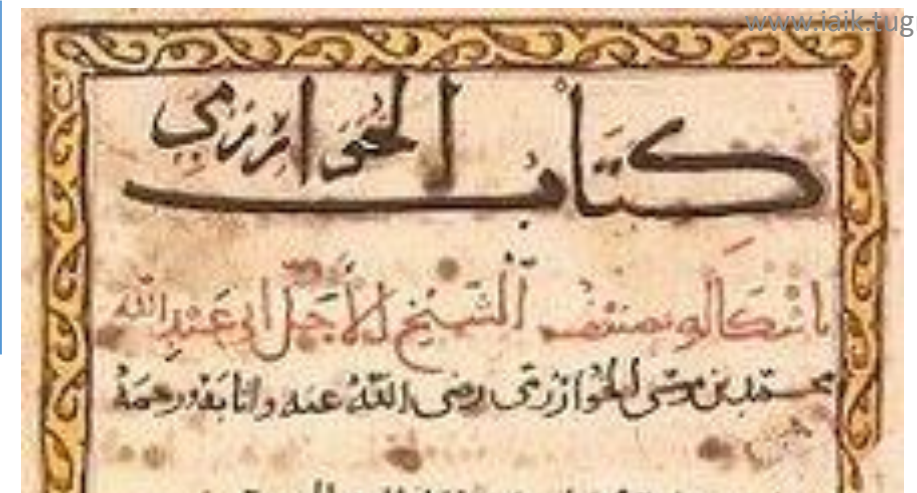 www.iaik.tug
كتاب الخوارزمي
باشكاله وتصنيف الشيخ الأجل ابي عبد الله
محمد بن موسى الخوارزمي رضى الله عنه واثابه ورحمة